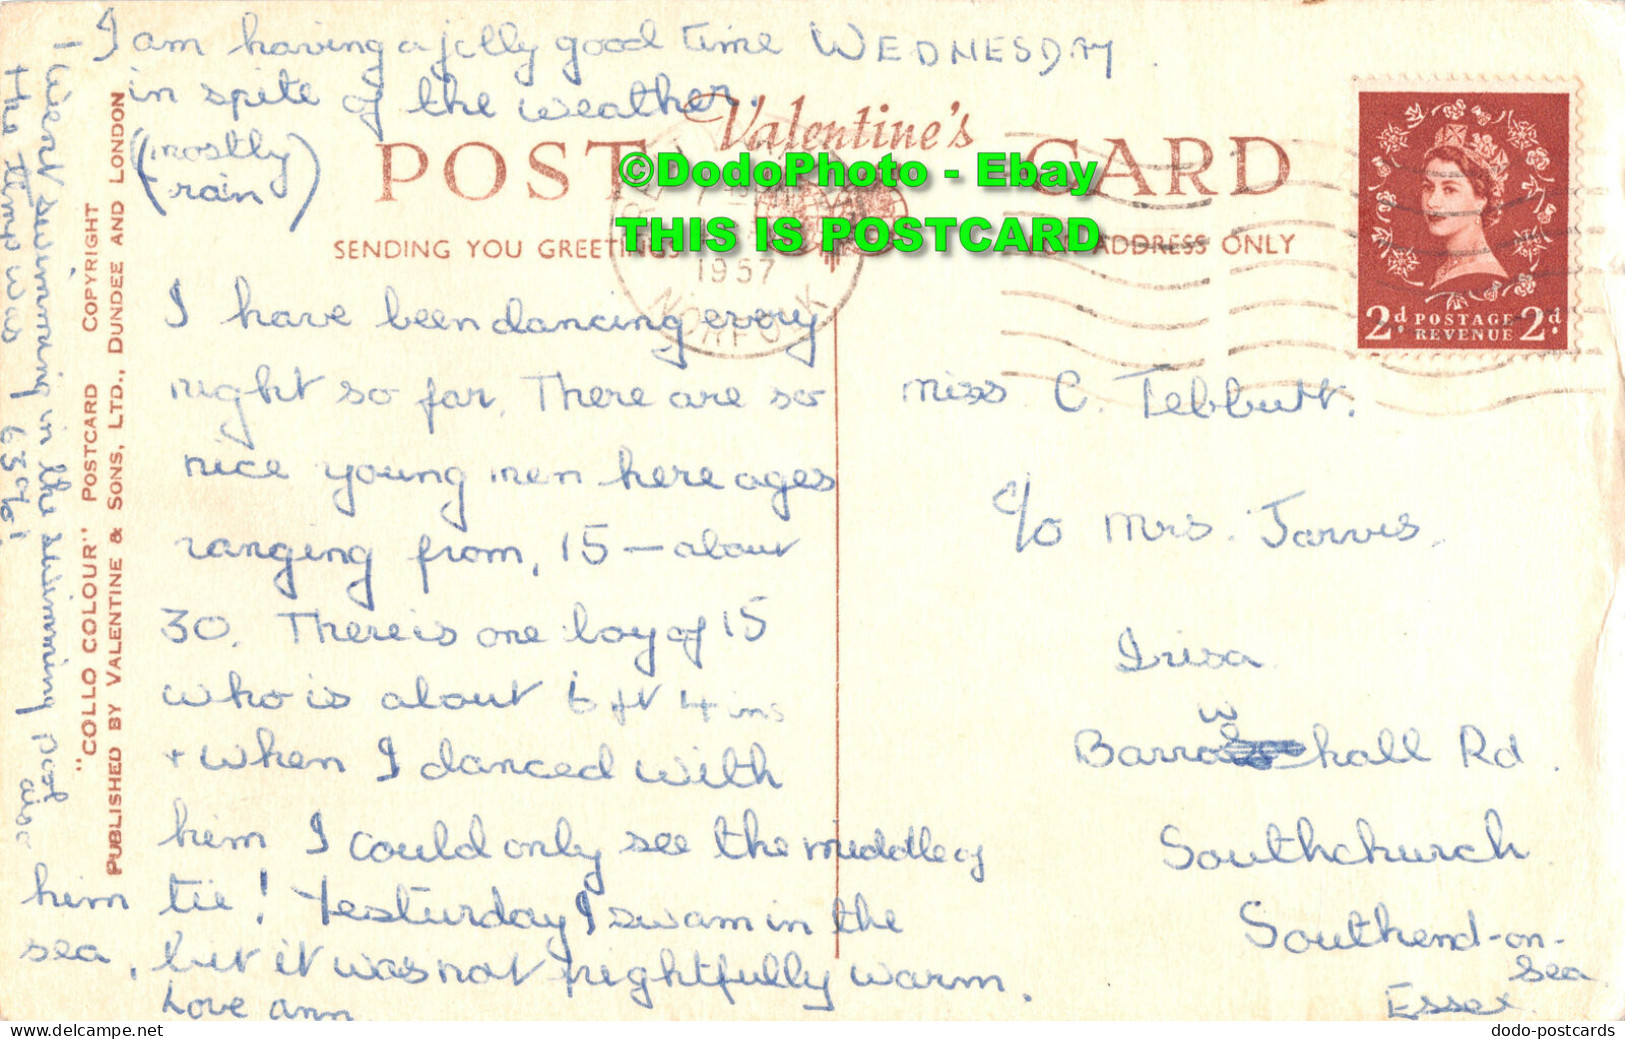 I am having a jolly good time WEDNESDAY
in spite of the weather.
(mostly
rain)
Valentine's
POST CARD
©DodoPhoto - Ebay
THIS IS POSTCARD
SENDING YOU GREETINGS
ADDRESS ONLY
1957
NORFOLK
2d POSTAGE REVENUE 2d.
I have been dancing every
night so far. There are so
nice young men here ages
ranging from, 15 — about
30. There is one boy of 15
who is about 6 ft 4 ins
+ when I danced with
him I could only see the middle of
him tie! Yesterday I swam in the
sea, but it was not frightfully warm.
Love Ann
I went swimming in the swimming pool also
the temp was 63°!
"COLLO COLOUR" POSTCARD COPYRIGHT
PUBLISHED BY VALENTINE & SONS, LTD., DUNDEE AND LONDON
Miss C. Tebbutt.
c/o Mrs. Jarvis.
Irisa
w
Barro hall Rd.
Southchurch
Southend-on-
Sea
Essex.
dodo-postcards